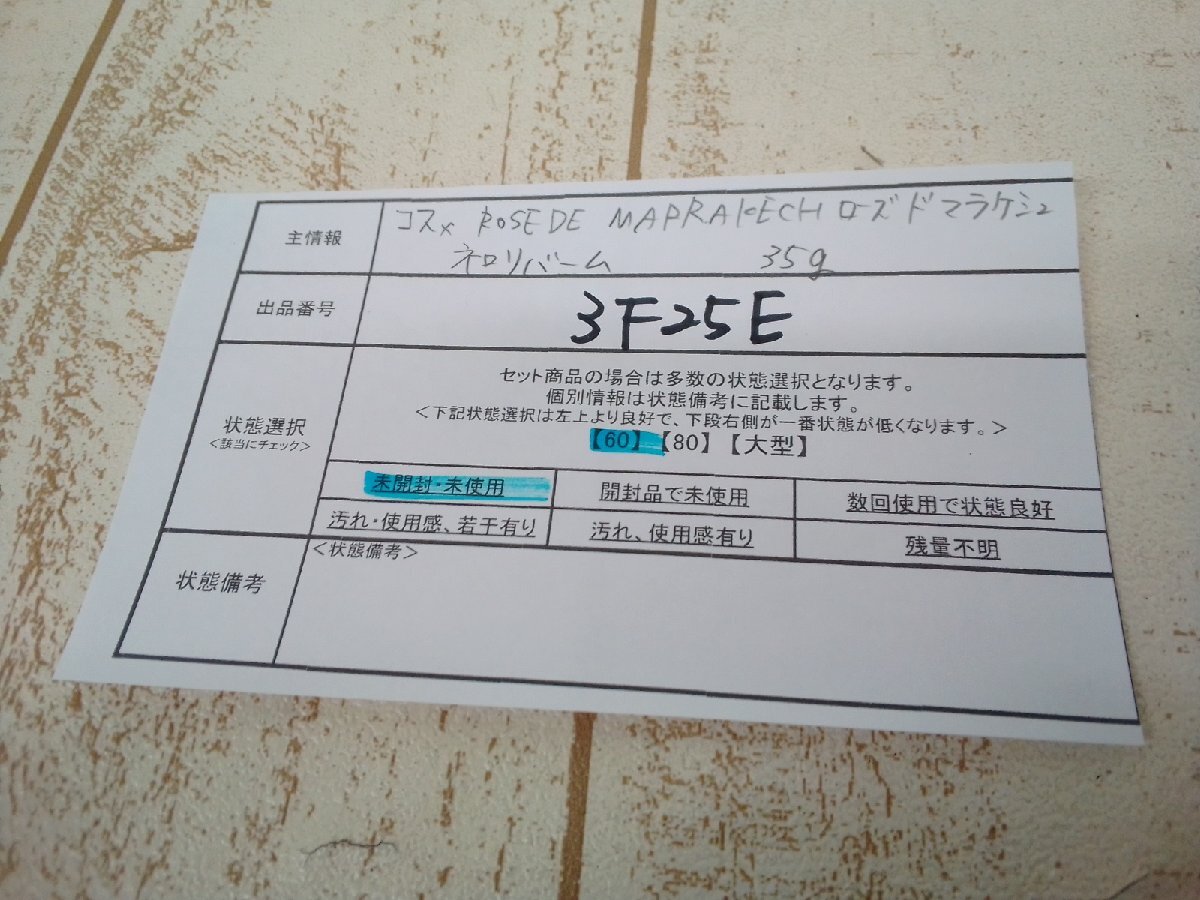 主情報
コスメ ROSE DE MAPRAKECH ローズ ド マラケシュ
ネロリバーム 35g
出品番号
3F25E
状態選択
<該当にチェック>
セット商品の場合は多数の状態選択となります。
個別情報は状態備考に記載します。
<下記状態選択は左上より良好で、下段右側が一番状態が低くなります。>
【60】【80】【大型】
未開封・未使用 開封品で未使用 数回使用で状態良好
汚れ・使用感、若干有り 汚れ、使用感有り 残量不明
状態備考
<状態備考>